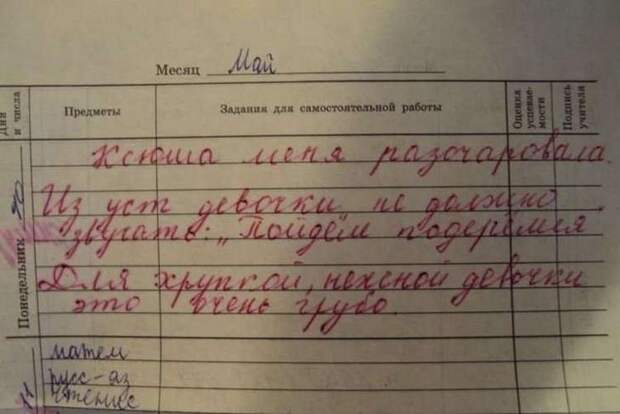 Месяц Май
Дни и числа Предметы Задания для самостоятельной работы Оценка успевае-мости Подпись учителя
Понедельник
Ксюша меня разочаровала.
Из уст девочки не должно
звучать: „Пойдём подерёмся"
Для хрупкой, нежной девочки
это очень грубо.
матем
русс-яз
чтение